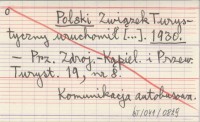 Polski Związek Turys-
tyczny uruchomił [...]. 1930.
— Prz. Zdroj.-Kąpiel. i Przew.
Turyst. 19, nr 8.
Komunikacja autobusowa.